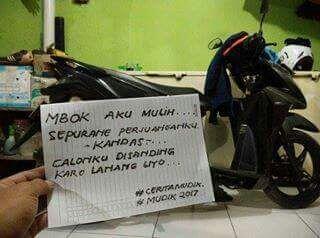 MBOK AKU MULIH....
SEPURANE PERJUANGANKU
- KANDAS -...
CALONKU DISANDING
KARO LANANG LIYO...
#CERITAMUDIK.
#MUDIK 2017